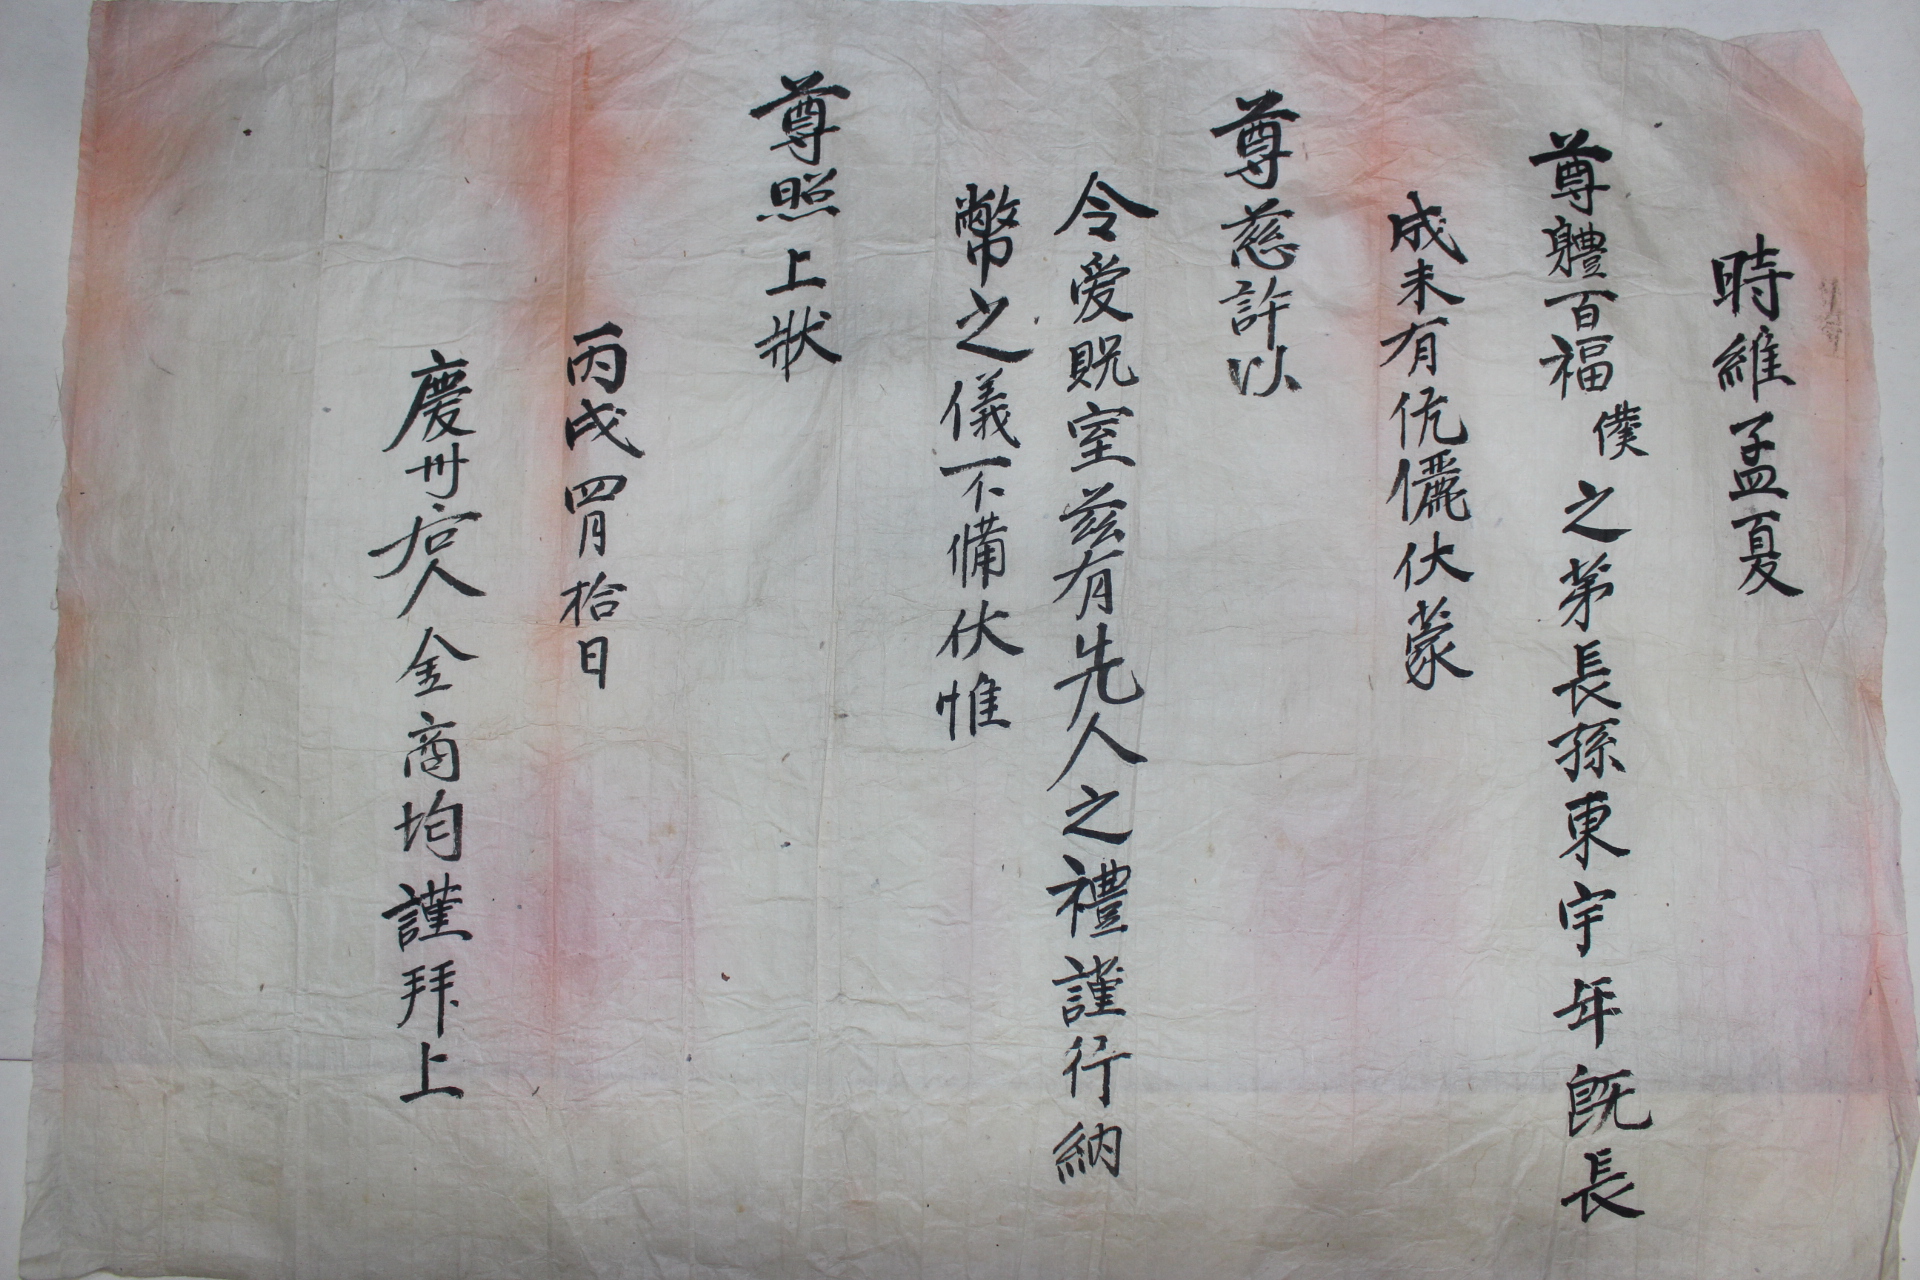 時維孟夏
尊體百福僕之第長孫東宇年旣長
成未有伉儷伏蒙
尊慈許以
令愛貺室玆有先人之禮謹行納
幣之儀不備伏惟
尊照上狀
丙戌四月拾日
慶州后人金商均謹拜上